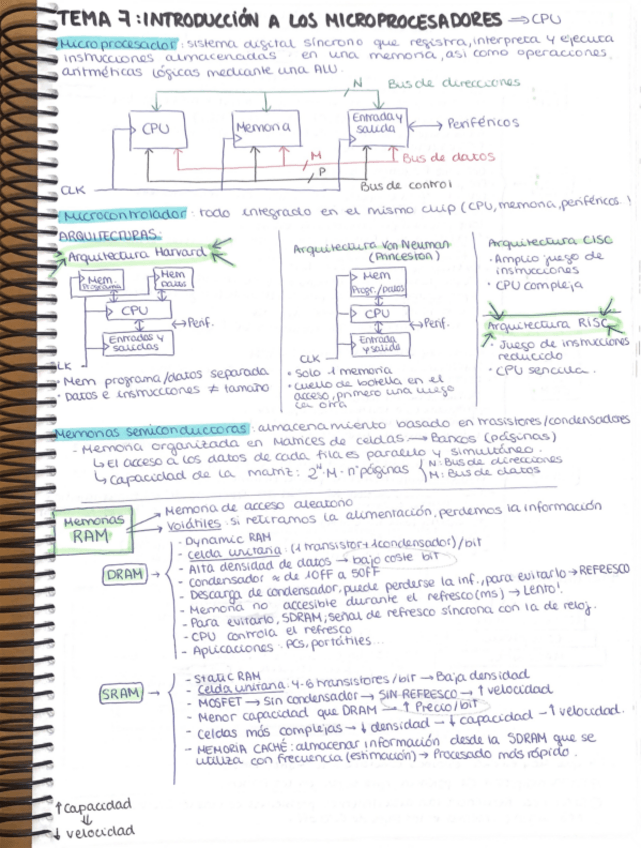 TEMA 7: INTRODUCCIÓN A LOS MICROPROCESADORES ⇒ CPU
Microprocesador: sistema digital síncrono que registra, interpreta y ejecuta
instrucciones almacenadas en una memoria, así como operaciones
aritméticas lógicas mediante una ALU.
N Bus de direcciones
CPU
Memoria
Entrada y
salida
Periféricos
M Bus de datos
P
CLK
Bus de control
Microcontrolador: todo integrado en el mismo chip (CPU, memoria, periféricos)
ARQUITECTURAS:
Arquitectura Harvard
Mem.
Programa
Mem
Datos
CPU
Entradas y
salidas
Perif.
CLK
· Mem programa/datos separada
· Datos e instrucciones ≠ tamaño
Arquitectura Von Neuman
(Princeston)
Mem
Progr./Datos
CPU
Entrada
y salida
Perif.
CLK
· Solo 1 memoria
· cuello de botella en el
acceso, primero una luego
la otra
Arquitectura CISC
· Amplio juego de
instrucciones
· CPU compleja
Arquitectura RISC
· Juego de instrucciones
reducido
· CPU sencilla.
Memorias semiconductoras: almacenamiento basado en trasistores/condensadores
- Memoria organizada en Matrices de celdas → Bancos (páginas)
↳ El acceso a los datos de cada fila es paralelo y simultáneo.
↳ Capacidad de la matriz: 2^N · M · nº páginas { N: Bus de direcciones
M: Bus de datos
Memorias
RAM
→ Memoria de acceso aleatorio
→ Volátiles: si retiramos la alimentación, perdemos la información
DRAM →
- Dynamic RAM
- Celda unitaria: (1 transistor + 1 condensador)/bit
- Alta densidad de datos → bajo coste bit
- Condensador ≈ de 10fF a 50fF
- Descarga de condensador, puede perderse la inf., para evitarlo → REFRESCO
- Memoria no accesible durante el refresco (ms) → Lento!
- Para evitarlo, SDRAM; señal de refresco síncrona con la de reloj.
- CPU controla el refresco
- Aplicaciones: PCs, portátiles...
SRAM →
- Static RAM
- Celda unitaria: 4-6 transistores/bit → Baja densidad
- MOSFET → Sin condensador → SIN REFRESCO → ↑ velocidad
- Menor capacidad que DRAM → ↑ Precio/bit
- Celdas más complejas → ↓ densidad → ↓ capacidad → ↑ velocidad.
- MEMORIA CACHÉ: almacenar información desde la SDRAM que se
utiliza con frecuencia (estimación) → Procesado más rápido.
↑ capacidad
⇓
↓ velocidad